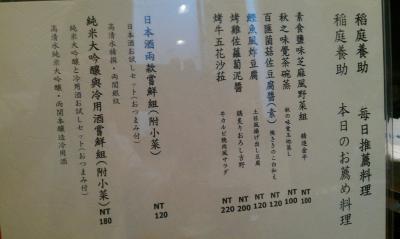 稻庭養助　每日推薦料理
稲庭養助　本日のお薦め料理
素食鹽味芝麻風野菜組　精進金平　NT 100
秋之味覺茶碗蒸　秋の味覚玉地蒸し　NT 100
百匯菌菇佐豆腐醬(素)　NT 120
鰹魚風炸豆腐　土佐風揚げ出し豆腐　NT 120
烤雞佐蘿蔔泥醬　鶏炙りおろし吉野　NT 200
烤牛五花沙菈　牛カルビ焼肉風サラダ　NT 220
日本酒兩款嘗鮮組(附小菜)　NT 120
日本酒お試しセット(おつまみ付)
高清水精撰・両関銀紋
純米大吟釀與冷用酒嘗鮮組(附小菜)　NT 180
純米大吟醸と冷用酒お試しセット(おつまみ付)
高清水純米大吟醸・両関本醸造冷用酒